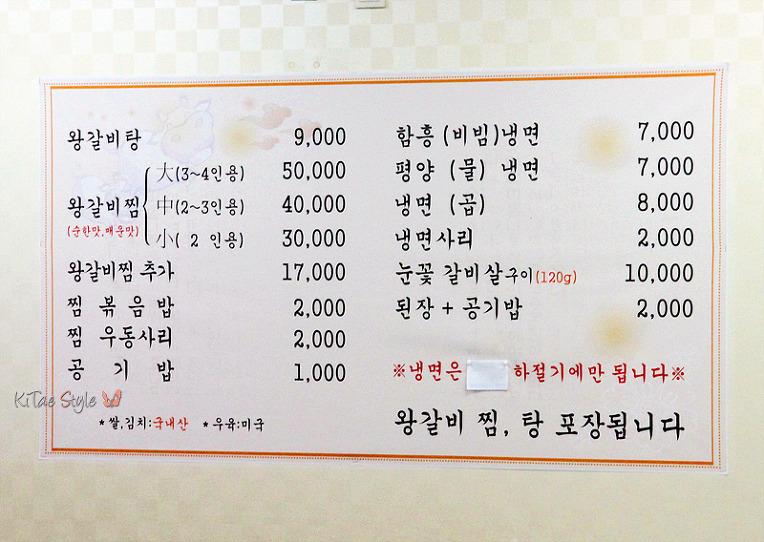 왕갈비탕 9,000
大(3~4인용) 50,000
왕갈비찜 中(2~3인용) 40,000
(순한맛,매운맛)
小( 2 인용) 30,000
왕갈비찜 추가 17,000
찜 볶음밥 2,000
찜 우동사리 2,000
공 기 밥 1,000
*쌀,김치:국내산 *우육:미국
함흥 (비빔)냉면 7,000
평양 (물) 냉면 7,000
냉면 (곱) 8,000
냉면사리 2,000
눈꽃 갈비살구이(120g) 10,000
된장 + 공기밥 2,000
※냉면은 하절기에만 됩니다※
왕갈비 찜, 탕 포장됩니다
KiTae Style